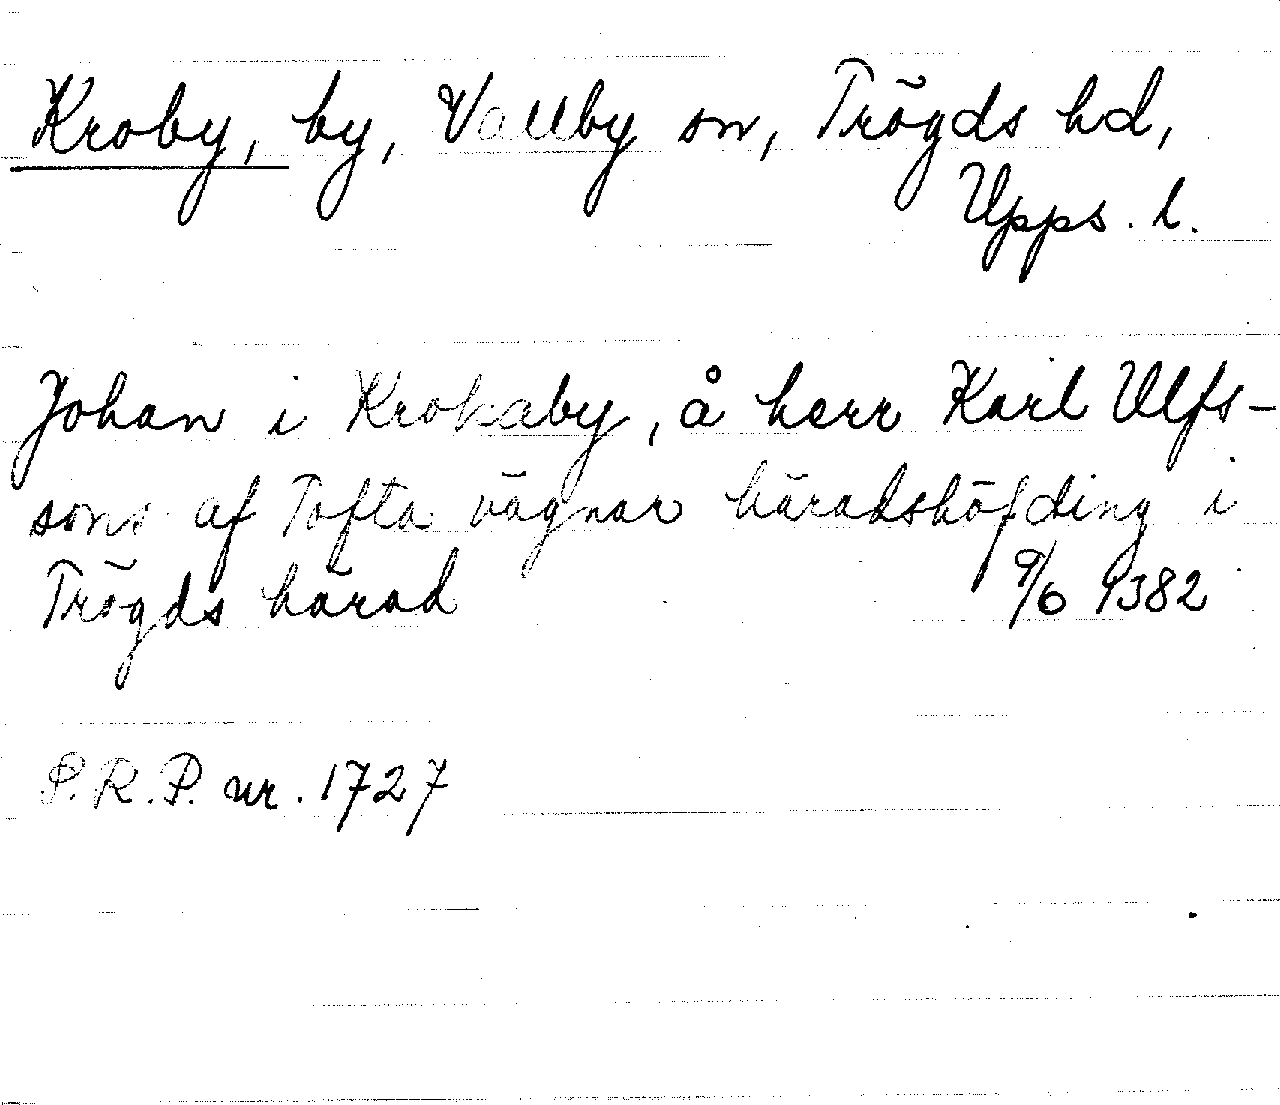 Kroby, by, Vallby sn, Trögds hd,
Upps. l.
Johan i Krokaby, å herr Karl Ulfs-
sons af Tofta vägnar häradshöfding i
Trögds härad 9/6 1382
P.R.P. nr. 1727